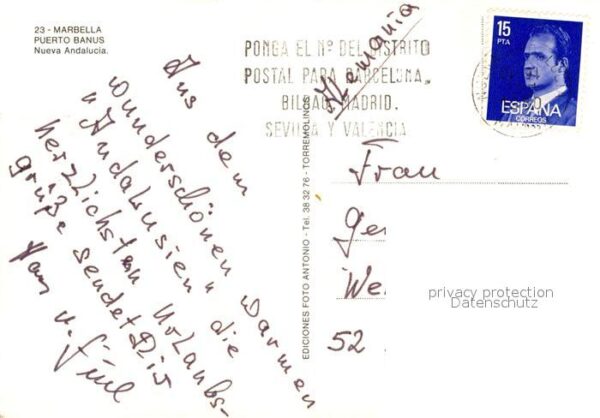 23 - MARBELLA
PUERTO BANUS
Nueva Andalucía.
Aus dem
wunderschönen warmen
"Andalusien" die
herzlichsten Urlaubs-
grüße sendet Dir
PONGA EL Nº DEL DISTRITO
POSTAL PARA BARCELONA,
BILBAO, MADRID,
SEVILLA Y VALENCIA
Alemania
15
PTA
ESPAÑA
CORREOS
EDICIONES FOTO ANTONIO - Tel. 38 32 76 - TORREMOLINOS
Frau
Ger
We
52
privacy protection
Datenschutz